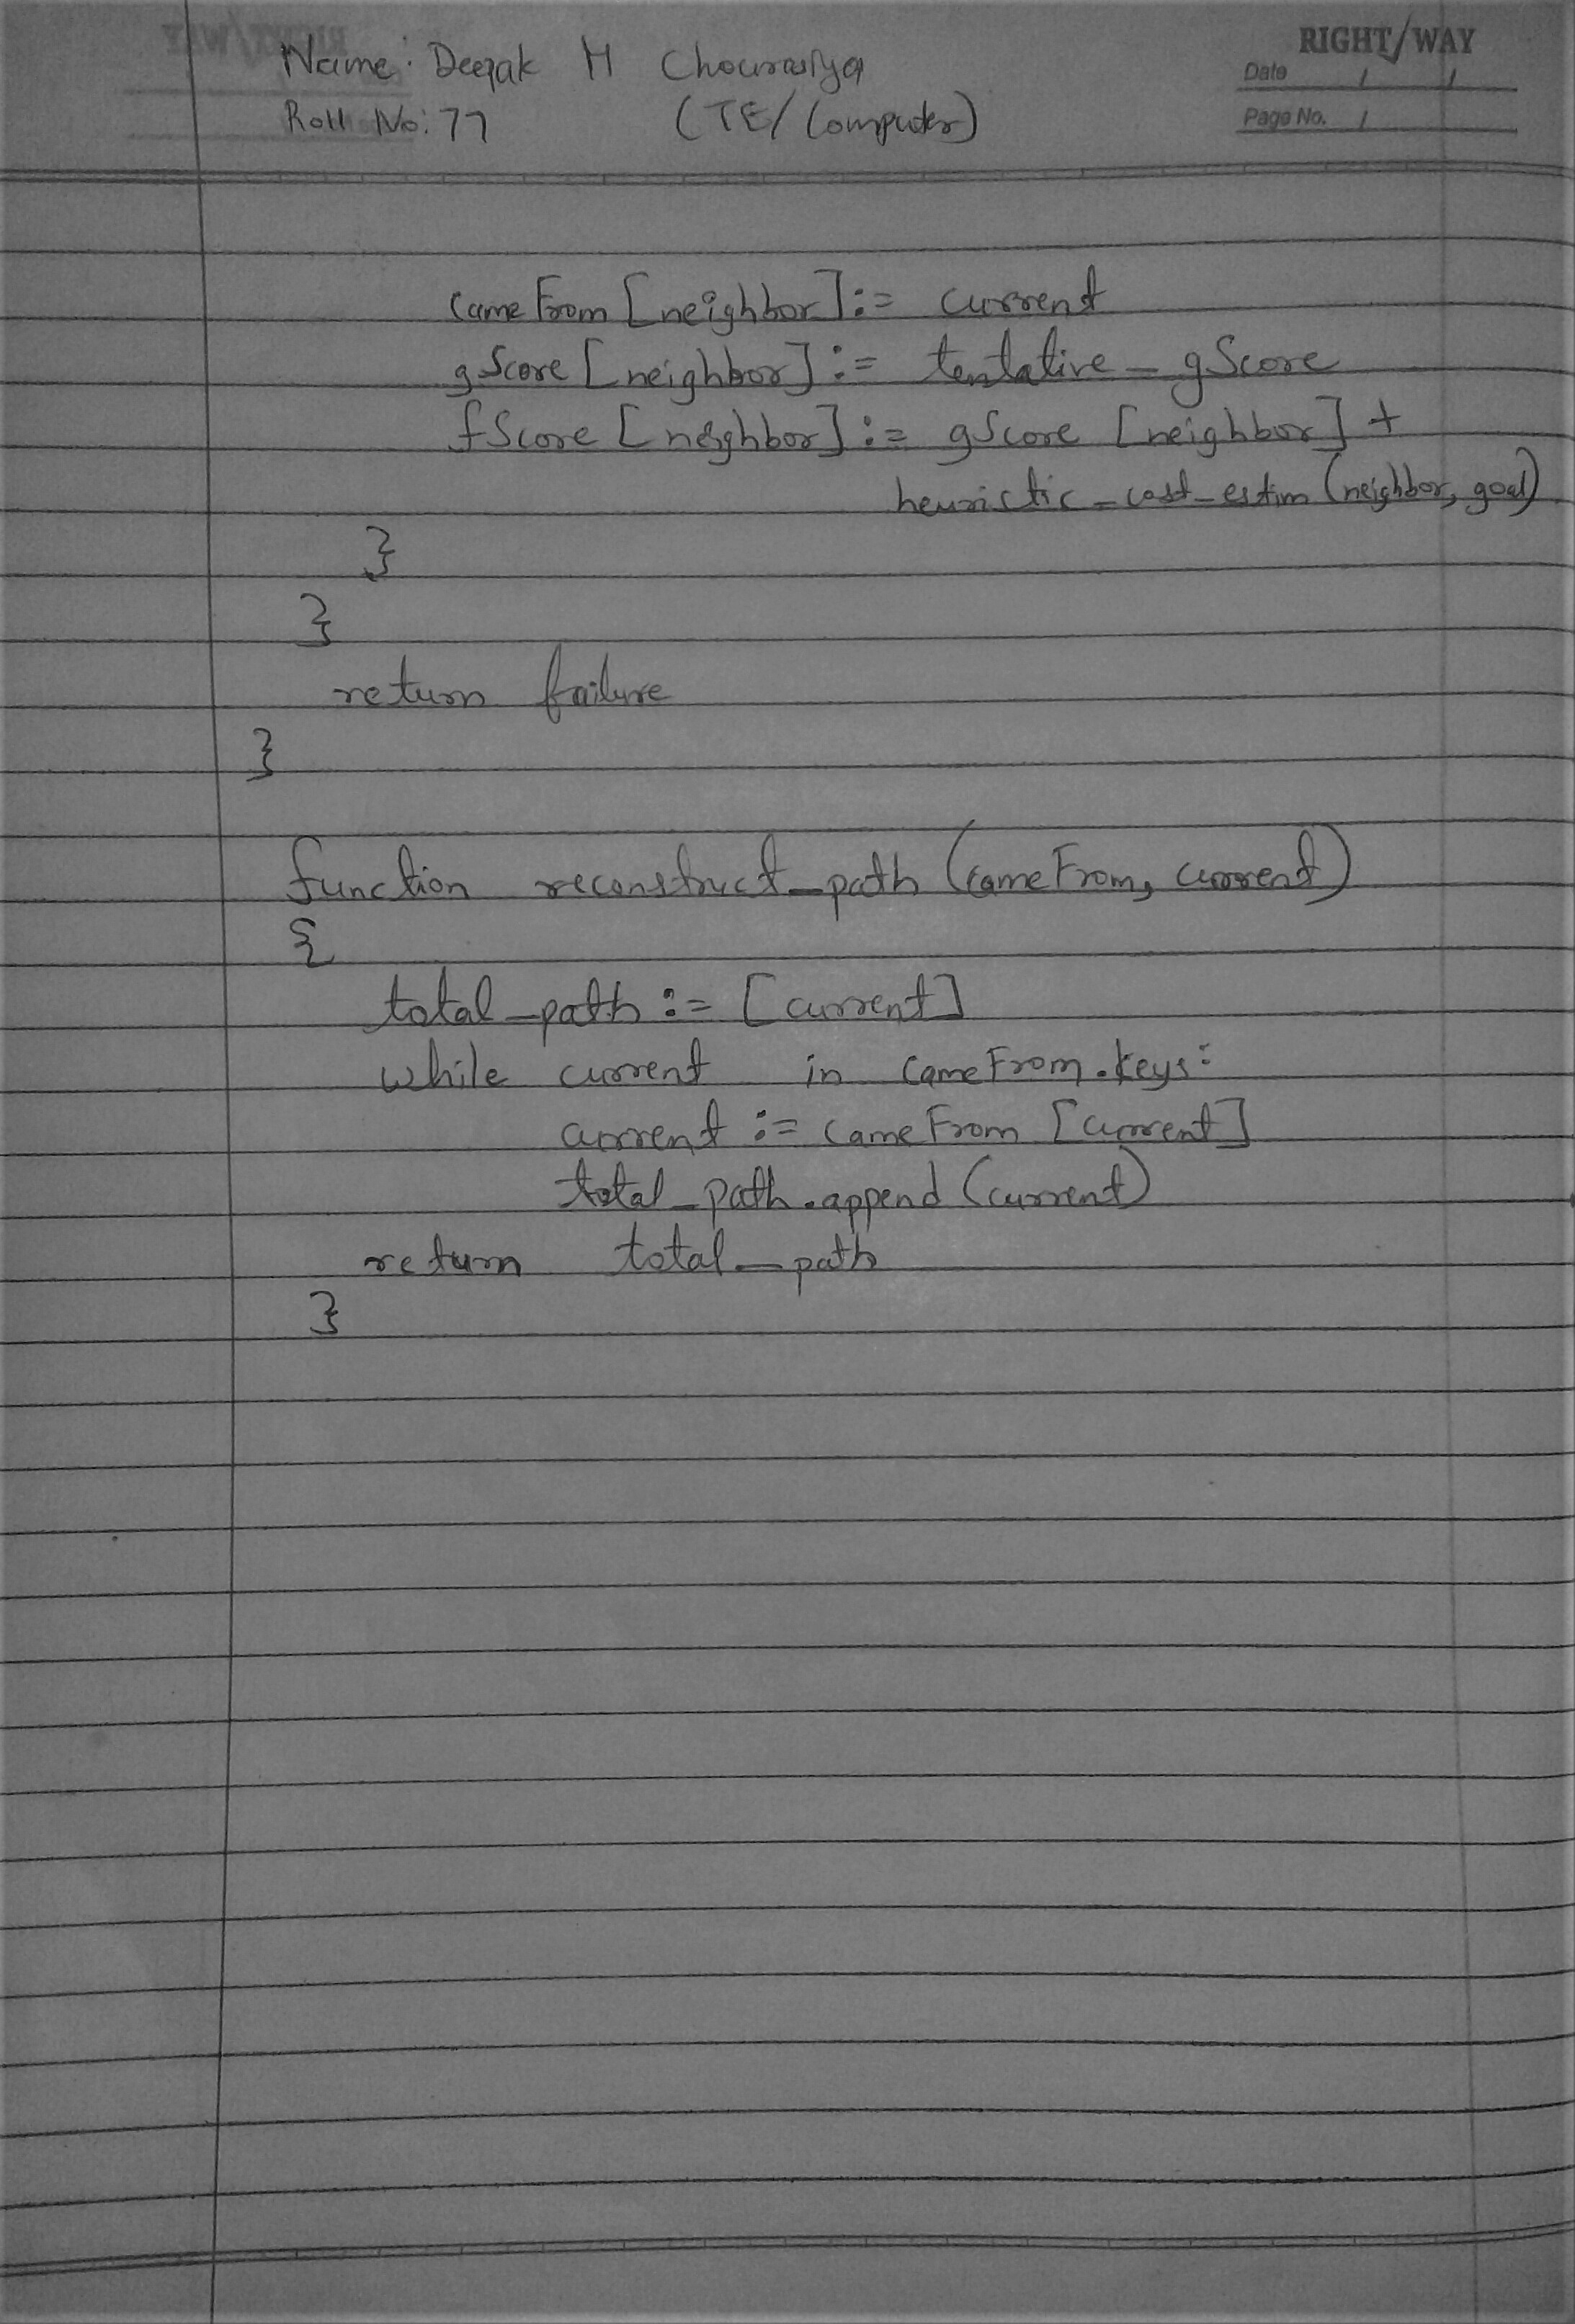 RIGHT/WAY
Name: Deepak M Chourasiya
Date / /
Roll No: 77 (TE/Computer)
Page No. /
cameFrom [neighbor] := current
gScore [neighbor] := tentative_gScore
fScore [neighbor] := gScore [neighbor] +
heurictic_cost_estim (neighbor, goal)
}
}
return failure
}
function reconstruct_path (cameFrom, current)
{
total_path := [current]
while current in cameFrom.keys:
current := cameFrom [current]
total_path.append (current)
return total_path
}